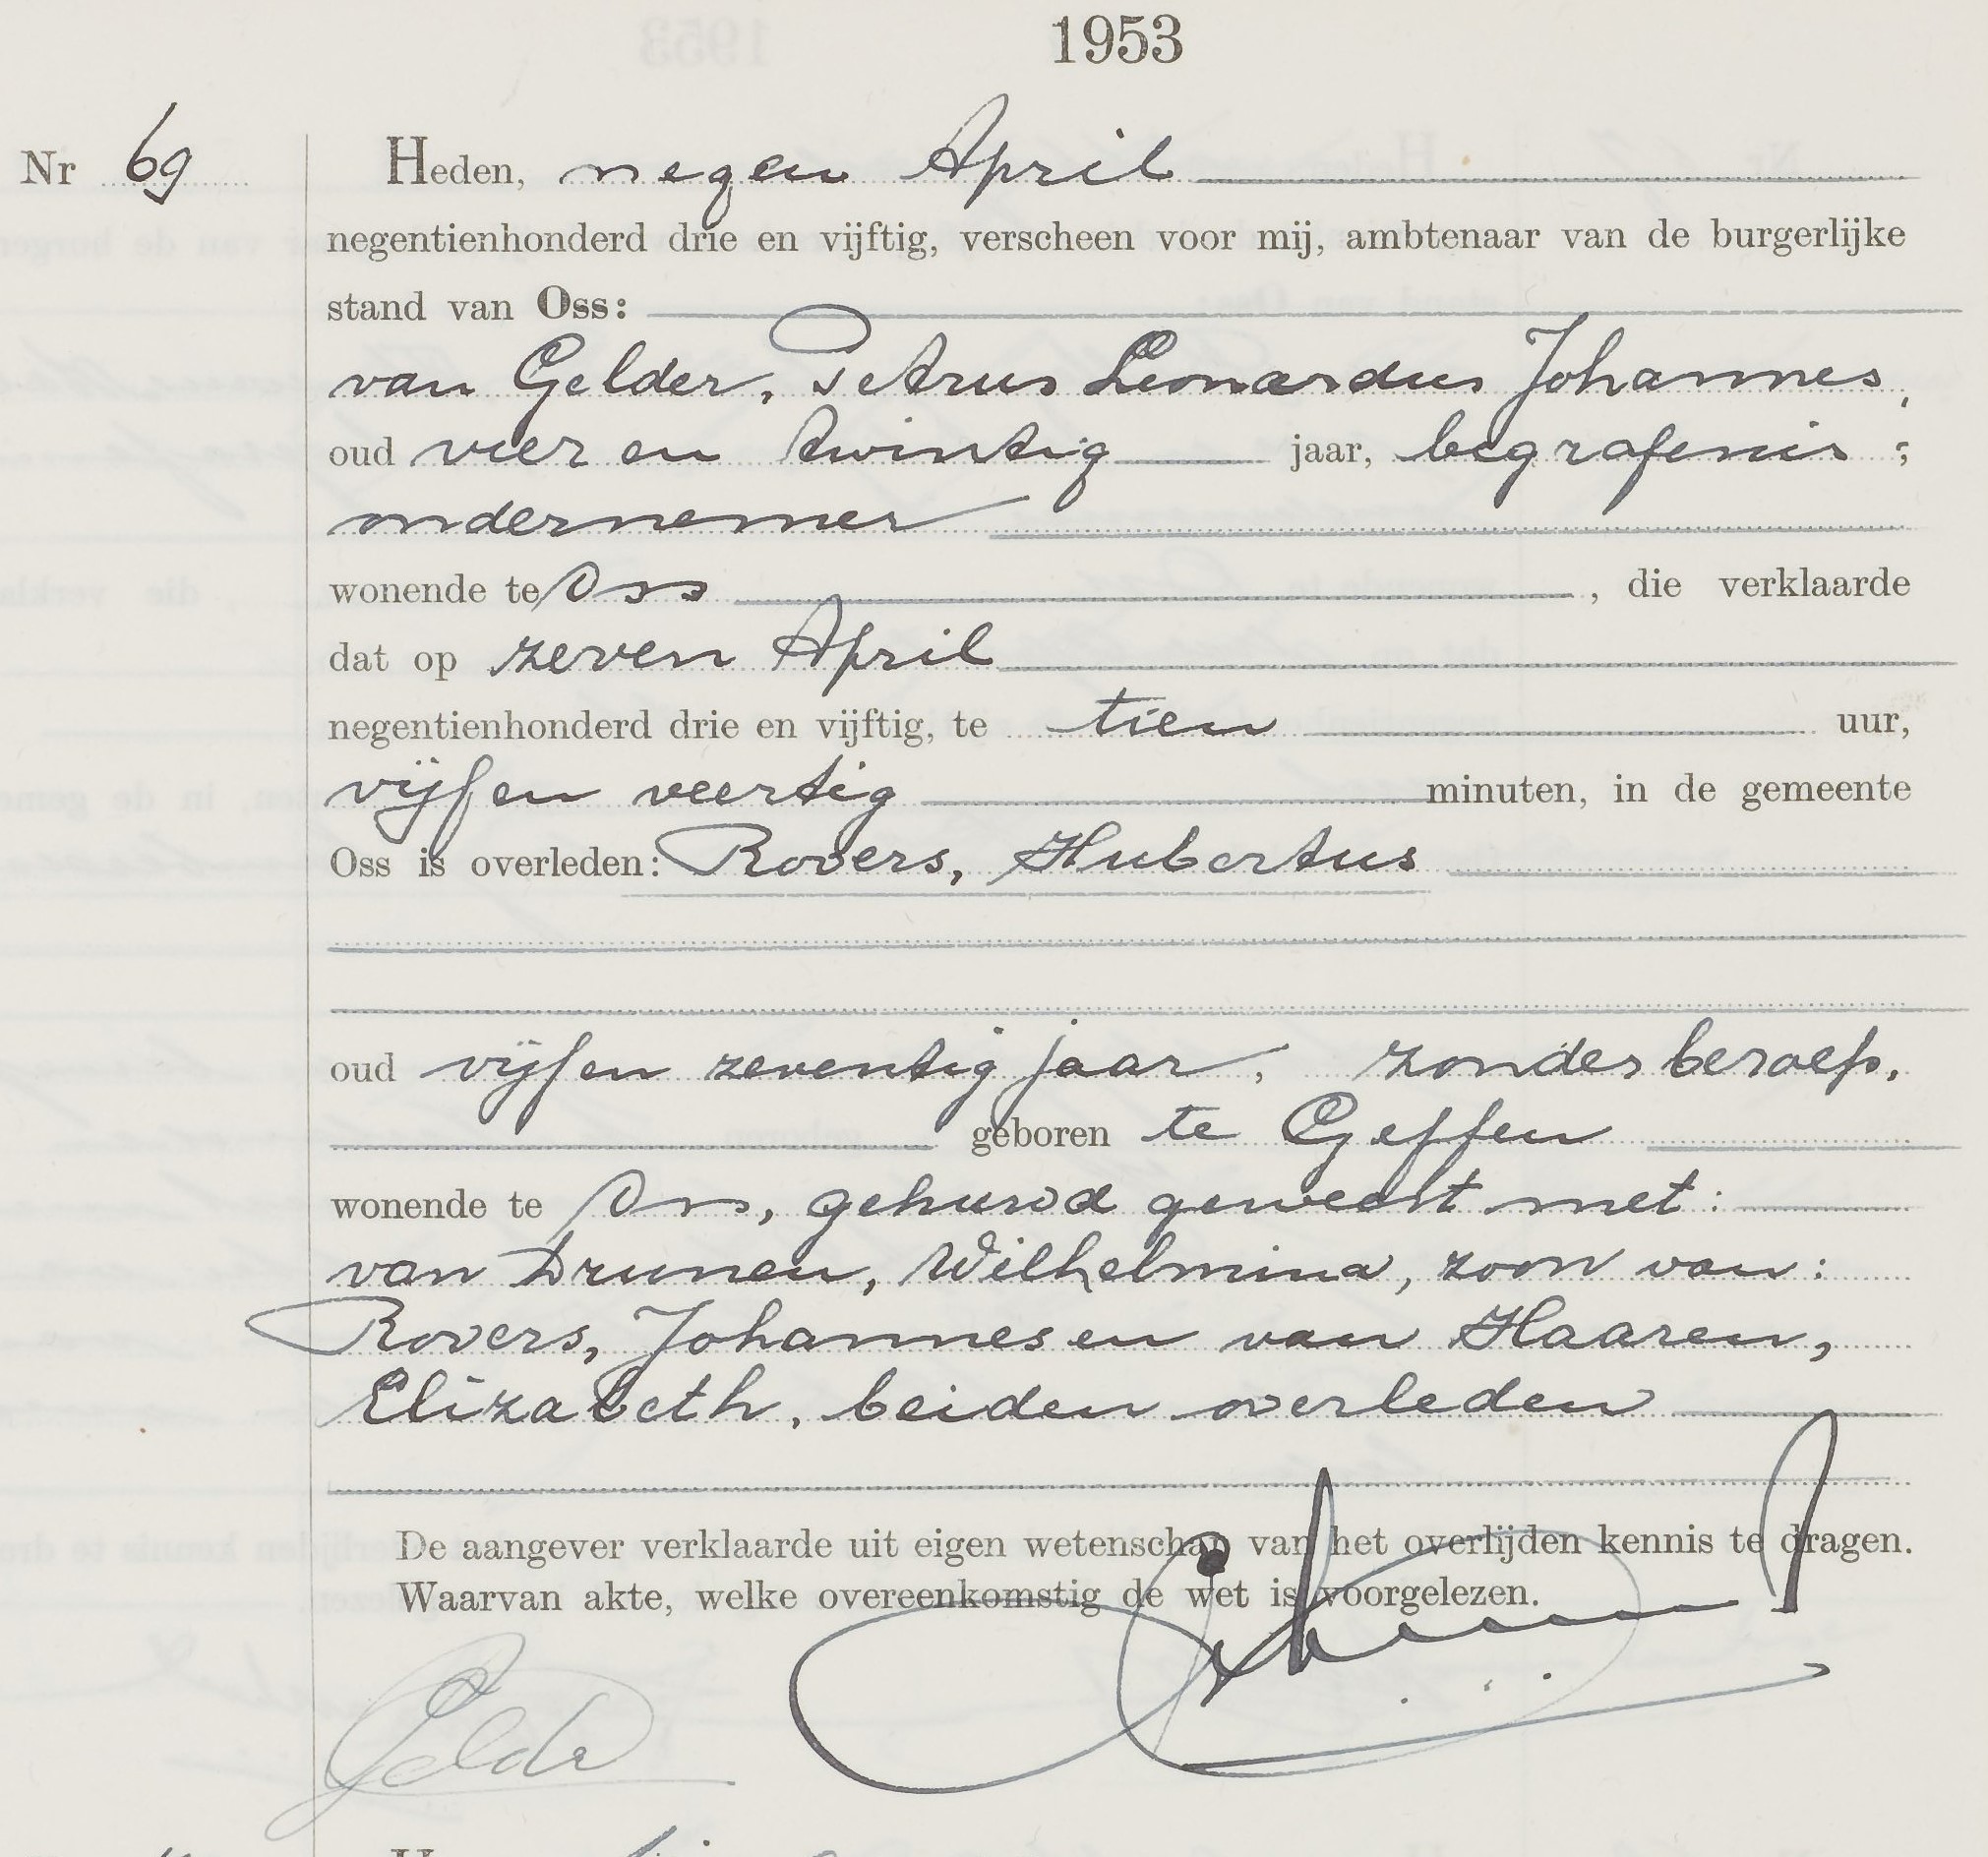 1953
Nr 69
Heden, negen April
negentienhonderd drie en vijftig, verscheen voor mij, ambtenaar van de burgerlijke
stand van Oss:
van Gelder, Petrus Leonardus Johannes,
oud vier en twintig jaar, begrafenis-
ondernemer
wonende te Oss, die verklaarde
dat op zeven April
negentienhonderd drie en vijftig, te tien uur,
vijf en veertig minuten, in de gemeente
Oss is overleden: Rovers, Hubertus
oud vijf en zeventig jaar, zonder beroep,
geboren te Geffen
wonende te Oss, gehuwd geweest met:
van Drunen, Wilhelmina, zoon van:
Rovers, Johannes en van Haaren,
Elizabeth, beiden overleden
De aangever verklaarde uit eigen wetenschap van het overlijden kennis te dragen.
Waarvan akte, welke overeenkomstig de wet is voorgelezen.
Gelder